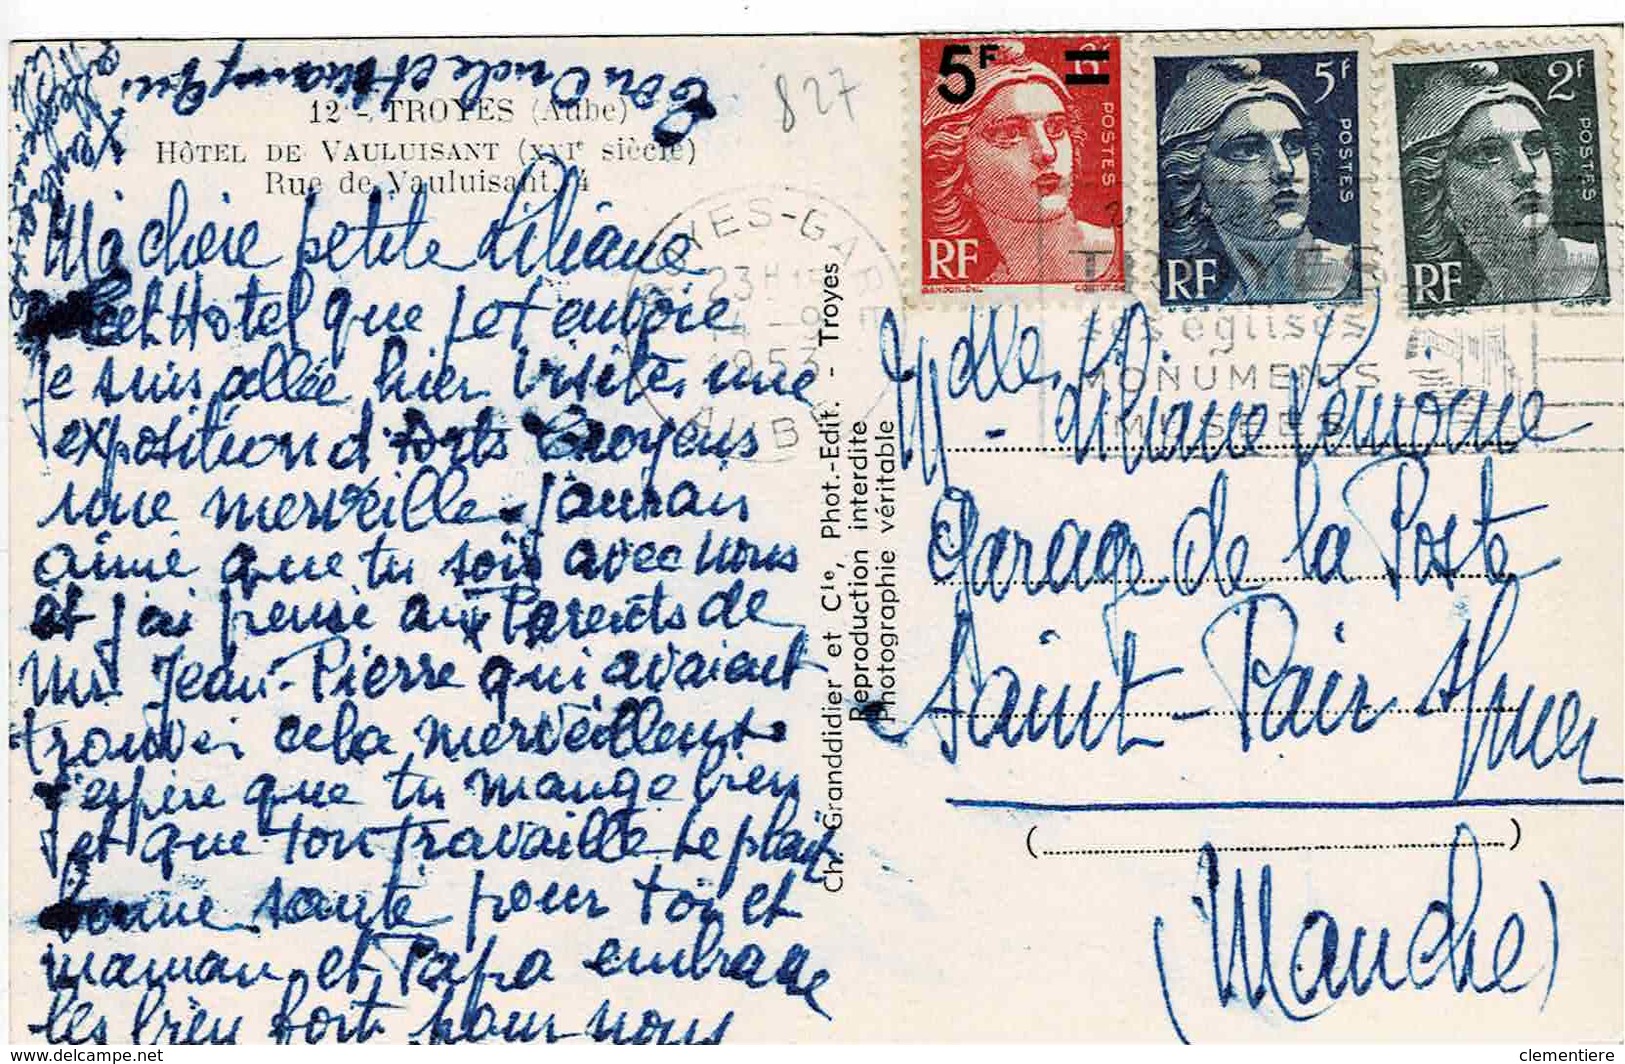 12 - TROYES (Aube)
HÔTEL DE VAULUISANT (XVIe siècle)
Rue de Vauluisant, 4
827
Ma chère petite Liliane
cet Hotel que je t envoie
je suis allée hier visiter une
exposition d'Arts Troyens
une merveille. J'aurais
aimé que tu sois avec nous
et j'ai pensé aux Parents de
Mr Jean-Pierre qui avaient
trouver cela merveilleux
j'espère que tu mange bien
et que ton travaille te plait
bonne santé pour toi et
maman et Papa embrasse
les bien fort pour nous
Ton Oncle et qui
Ch. Granddidier et Cie, Phot.-Edit. - Troyes
Reproduction interdite
Photographie véritable
5F
6F
POSTES
RF
GANDON.DEL
5F
POSTES
RF
2F
POSTES
RF
TROYES-GARE
23H
1953
AUBE
TROYES
ses églises
MONUMENTS
MUSEES
Mdlle
Liliane Lemoine
Garage de la Poste
Saint-Pair s/mer
(Manche)
www.delcampe.net
clementiere